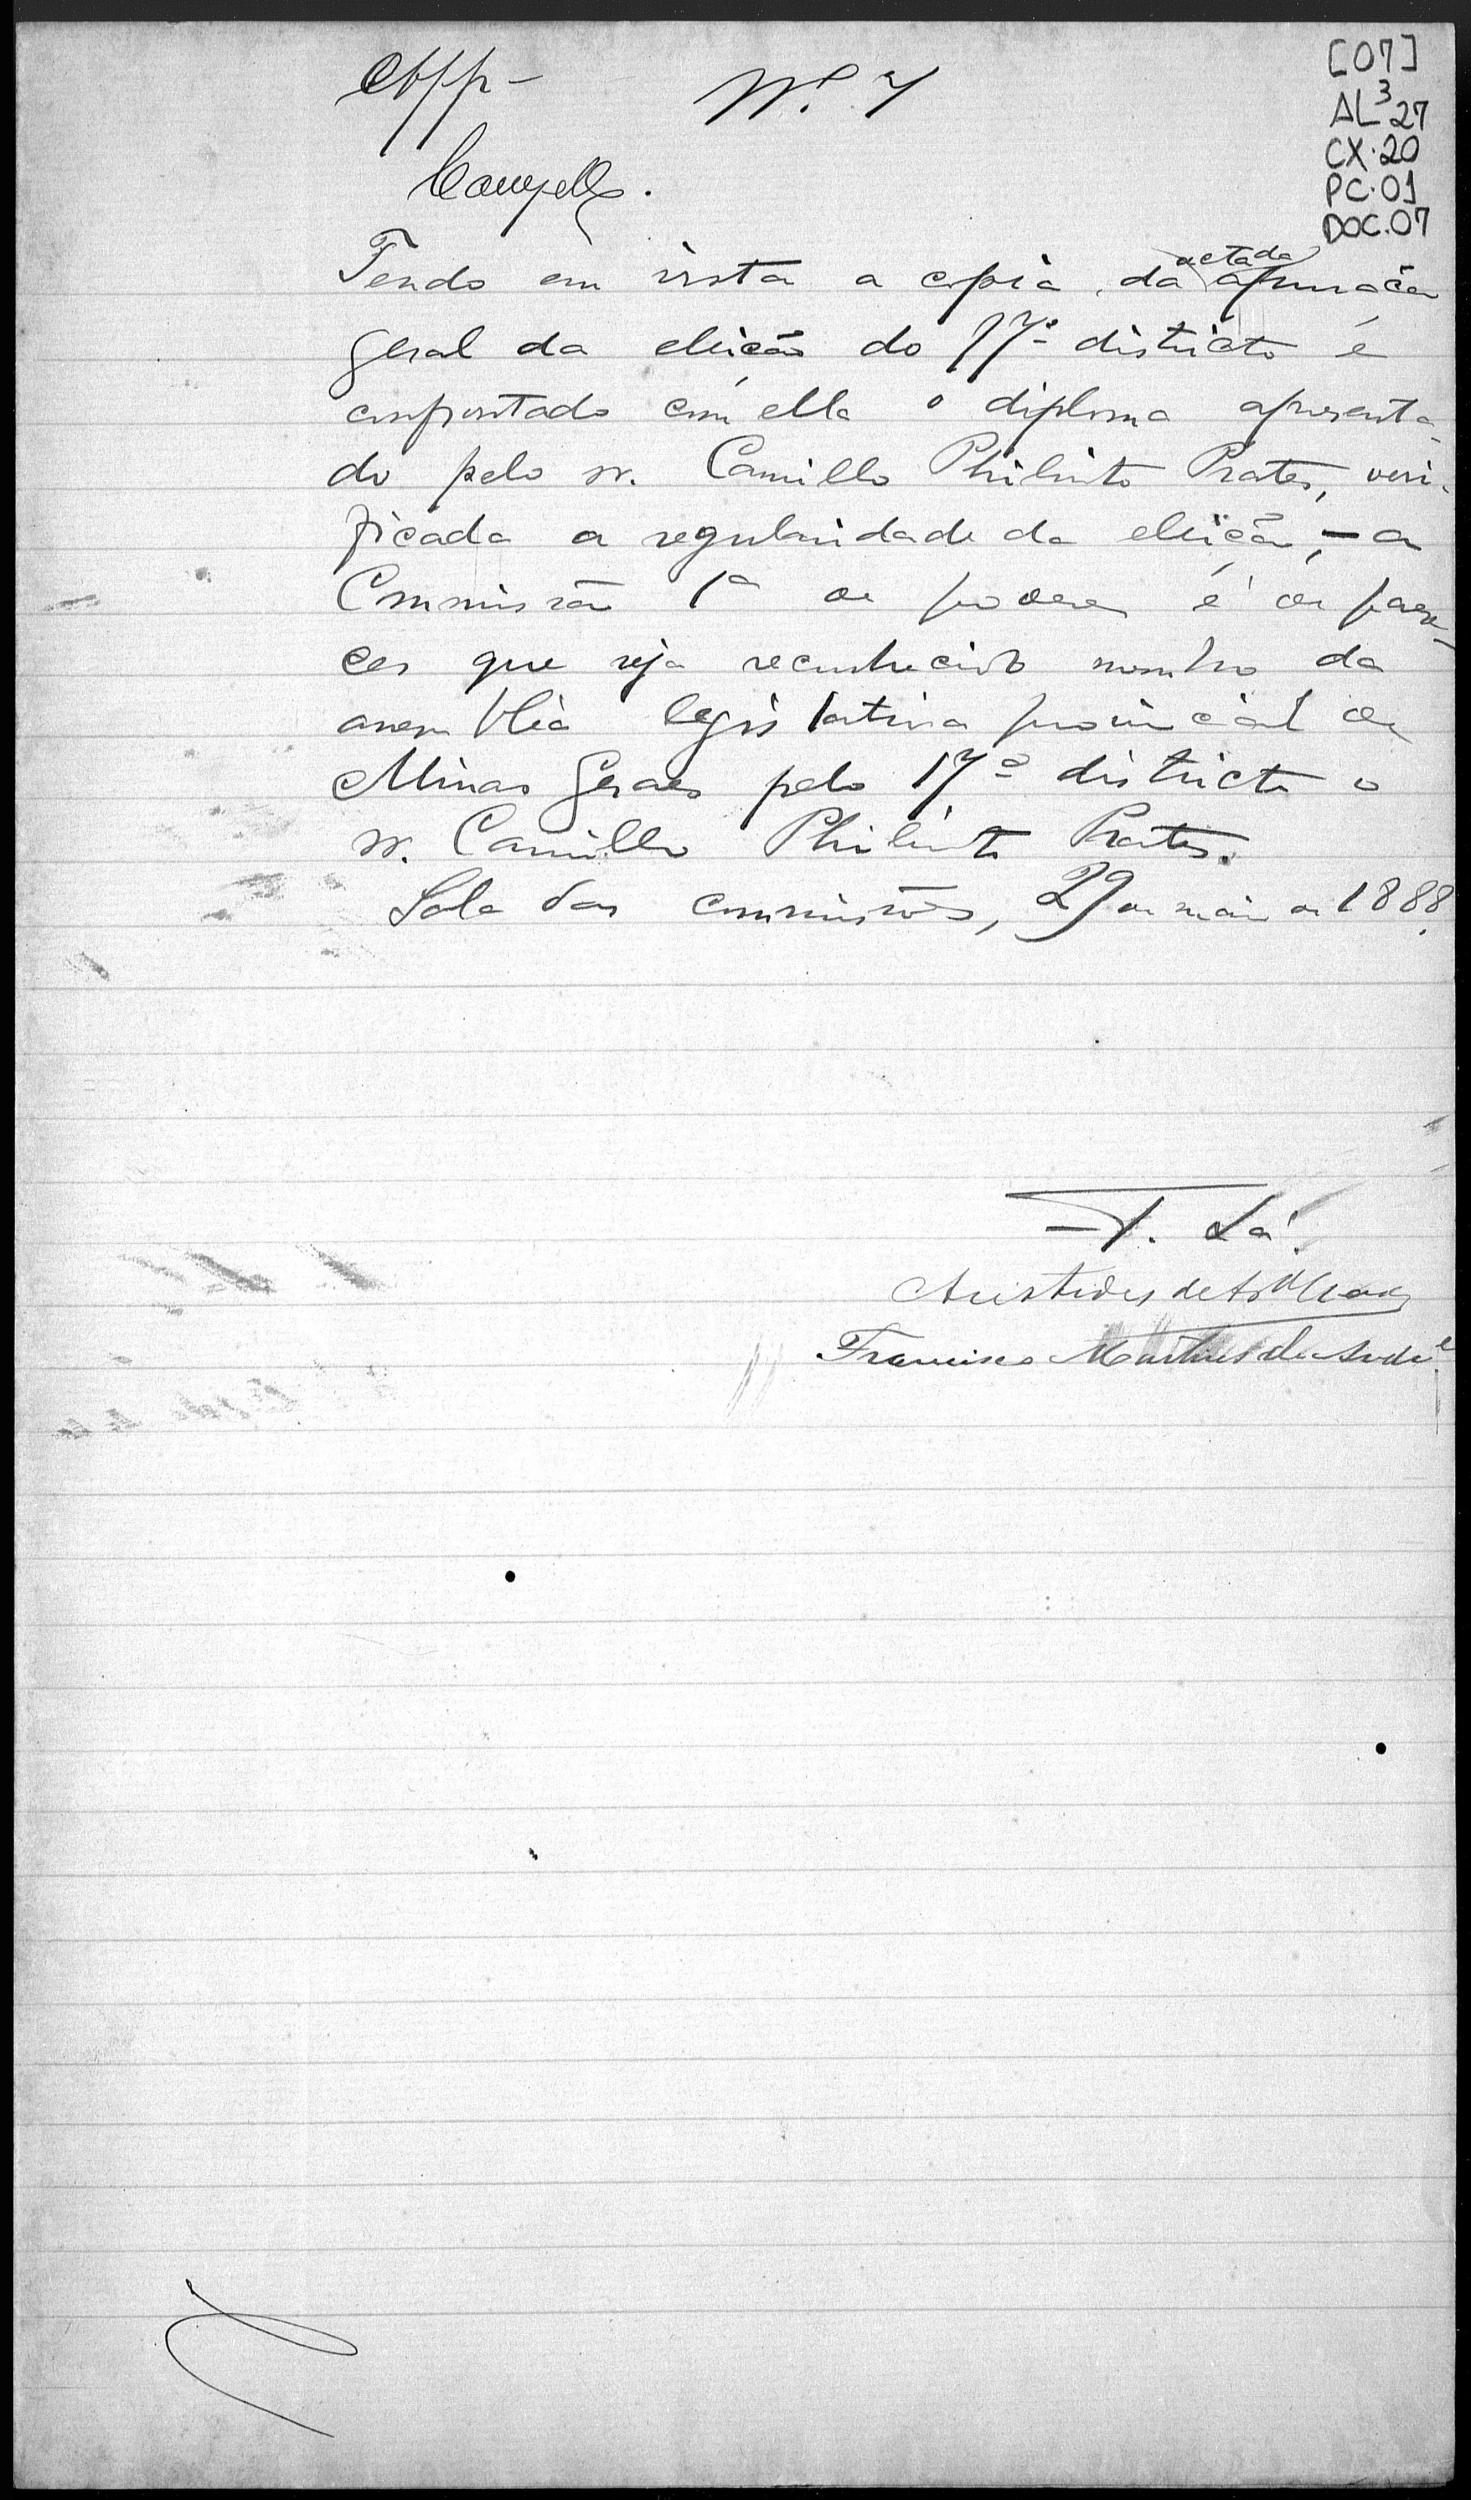 [07]
AL³27
CX.20
PC.01
DOC.07
App-
Nº 7
Campello.
Tendo em vista a copia da acta da apuração
geral da eleição do 17º districto e
confrontado com ella o diploma apresenta-
do pelo sr. Camillo Philinto Prates, veri-
ficada a regularidade da eleição, - a
Commissão 1ª de poderes é de pare-
cer que seja reconhecido membro da
assembléa legislativa provincial de
Minas Geraes pelo 17º districto o
sr. Camillo Philinto Prates.
Sala das commissões, 29 de maio de 1888.
T. Sá.
Aristides de A. Maia
Francisco Martins de Andre